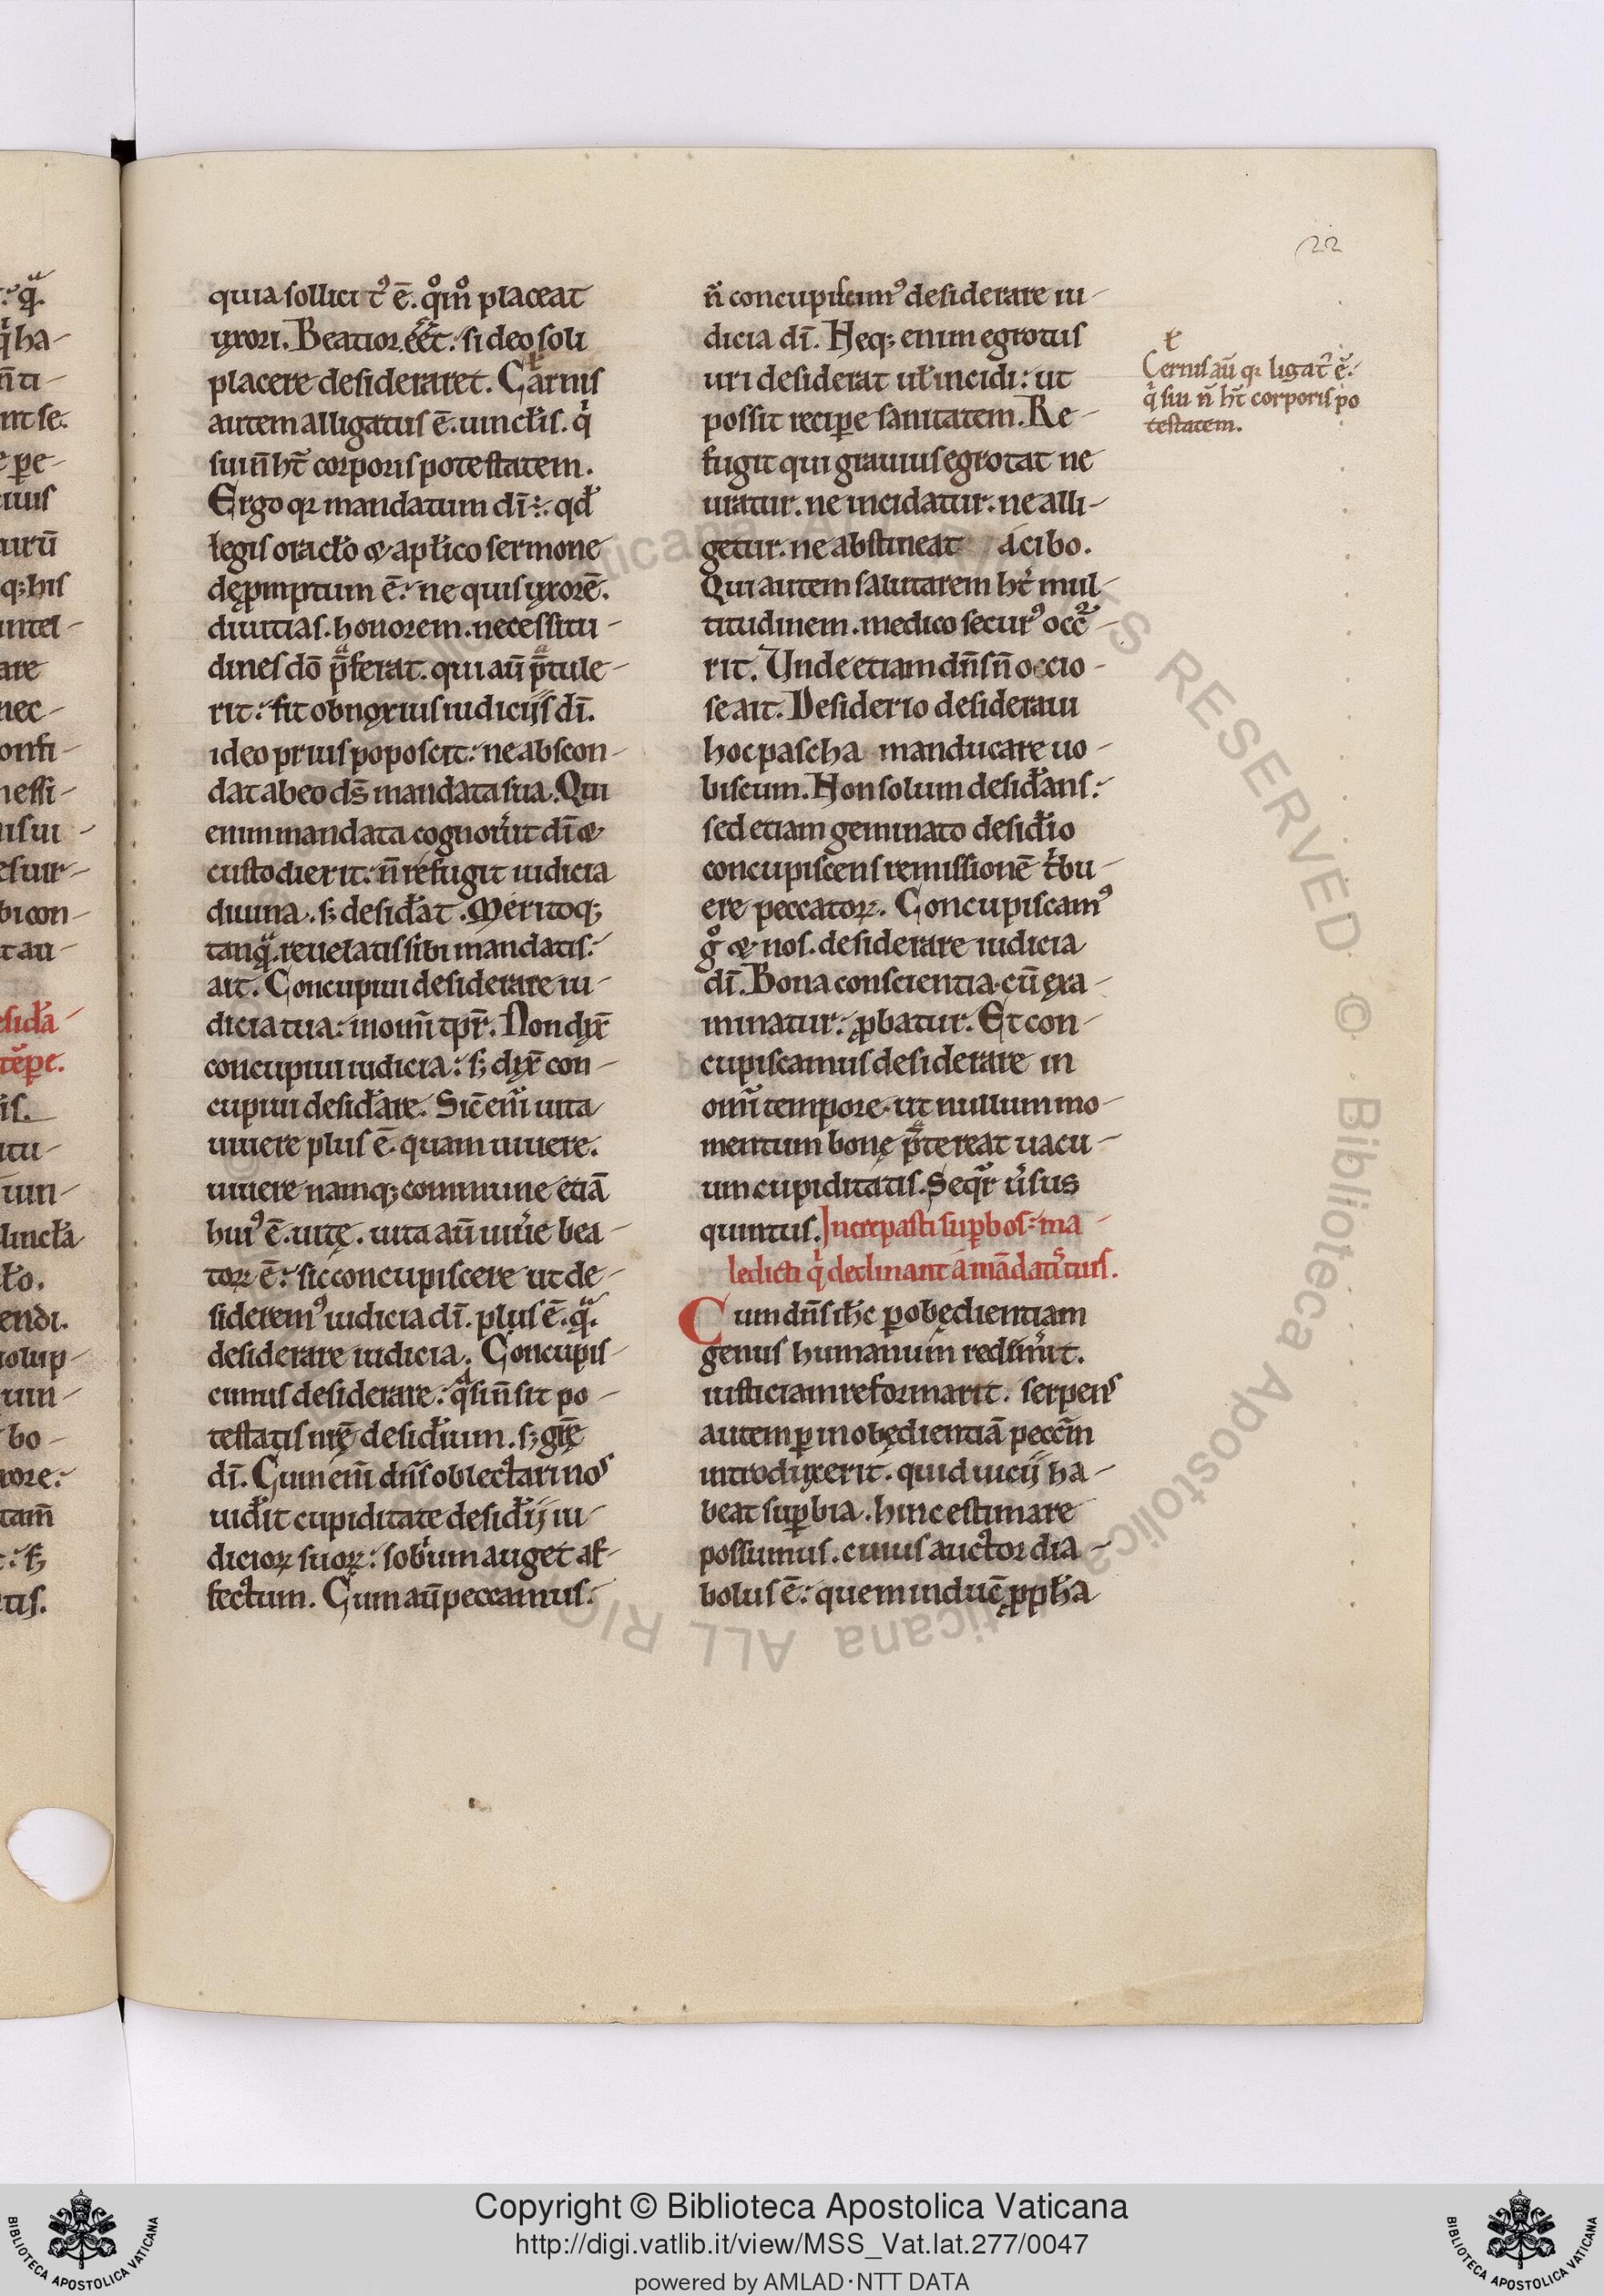 22
quia sollicitꝰ ē. qͦmͦ placeat
uxori. Beatior eēt: si deo soli
placere desideraret. Carnis
autem alligatus ē. uincłis. qͥ
sui n̄ hт̄ corporis potestatem.
Ergo qꝛ mandatum dī: qđ
legis oracło & apłico sermone
dępmptum ē: ne quis uxorē.
diuitias. honorem. necessitu-
dines dō p̄ferat. qui aū p̄tule-
rit: fit obnoxius iudiciis dī.
ideo prius poposcit: ne abscon-
dat ab eo ds̄ mandata sua. Qui
enim mandata cognouͥit dī &
custodierit: n̄ refugit iudicia
diuina. sꝫ desiđat. Meritoqꝫ
tanqᷓ. reuelatis sibi mandatis:
ait. Concupiui desiderare iu-
dicia tua: in omī tp̄r. Non dix̄
concupiui iudicia: sꝫ dix̄ con-
cupiui desiđare. Sic enī uita
uiuere plus ē. quam uiuere.
uiuere namqꝫ commune etiā
huiꝰ ē. uitę. uita aū uiuͥe bea-
torꝝ ē: sic concupiscere ut de-
sideremꝰ iudicia dī. plus ē. qᷓ.
desiderare iudicia. Concupis-
cimus desiderare: qᷓsi n̄ sit po-
testatis nrę̄ desiđium. sꝫ grę̄
dī. Cum enī dn̄s oblectari nos
uiđit cupiditate desiđij iu-
diciorꝝ suorꝝ: sobͥum auget af-
fectum. Cum aū peccamus:
n̄ concupiscimꝰ desiderare iu-
dicia dī. Neqꝫ enim egrotus
uri desiderat uł incidi: ut
possit recipe sanitatem. Re-
fugit qui grauius egrotat ne
uratur. ne incidatur. ne alli-
getur. ne abstineat a cibo.
Qui autem salutarem hт̄ mul-
titudinem. medico securꝰ occᷣ-
rit. Unde etiam dn̄s n̄ occio-
se ait. Desiderio desideraui
hoc pascha manducare uo-
biscum. Non solum desiđans:
sed etiam geminato desiđio
concupiscens remissionē tͥbu-
ere peccatorꝝ. Concupiscamꝰ
gͦ & nos. desiderare iudicia
dī. Bona conscientia. cū exa-
minatur: ꝓbatur. Et con-
cupiscamus desiderare in
omī tempore. ut nullum mo-
mentum bonę p̄tereat uacu-
um cupiditatis. Seqͥr uͥsus
quintus. Increpasti suꝑbos: ma-
ledicti qͥ declinant a mādatꝭ tuis.
Cum dn̄s ihc̄ ꝑ obędientiam
genus humanum redimͥit.
iusticiam reformarit. serpens
autem ꝑ inobędientiā pecc̄m
introduxerit. quid uicij ha-
beat suꝑbia. hinc estimare
possumus. cuius auctor dia-
bolus ē: quem inducē ꝓpħa
Cernis aū qꝛ ligatꝰ ē:
qͥ sui n̄ hт̄ corporis po
testatem.
Copyright © Biblioteca Apostolica Vaticana
http://digi.vatlib.it/view/MSS_Vat.lat.277/0047
powered by AMLAD·NTT DATA